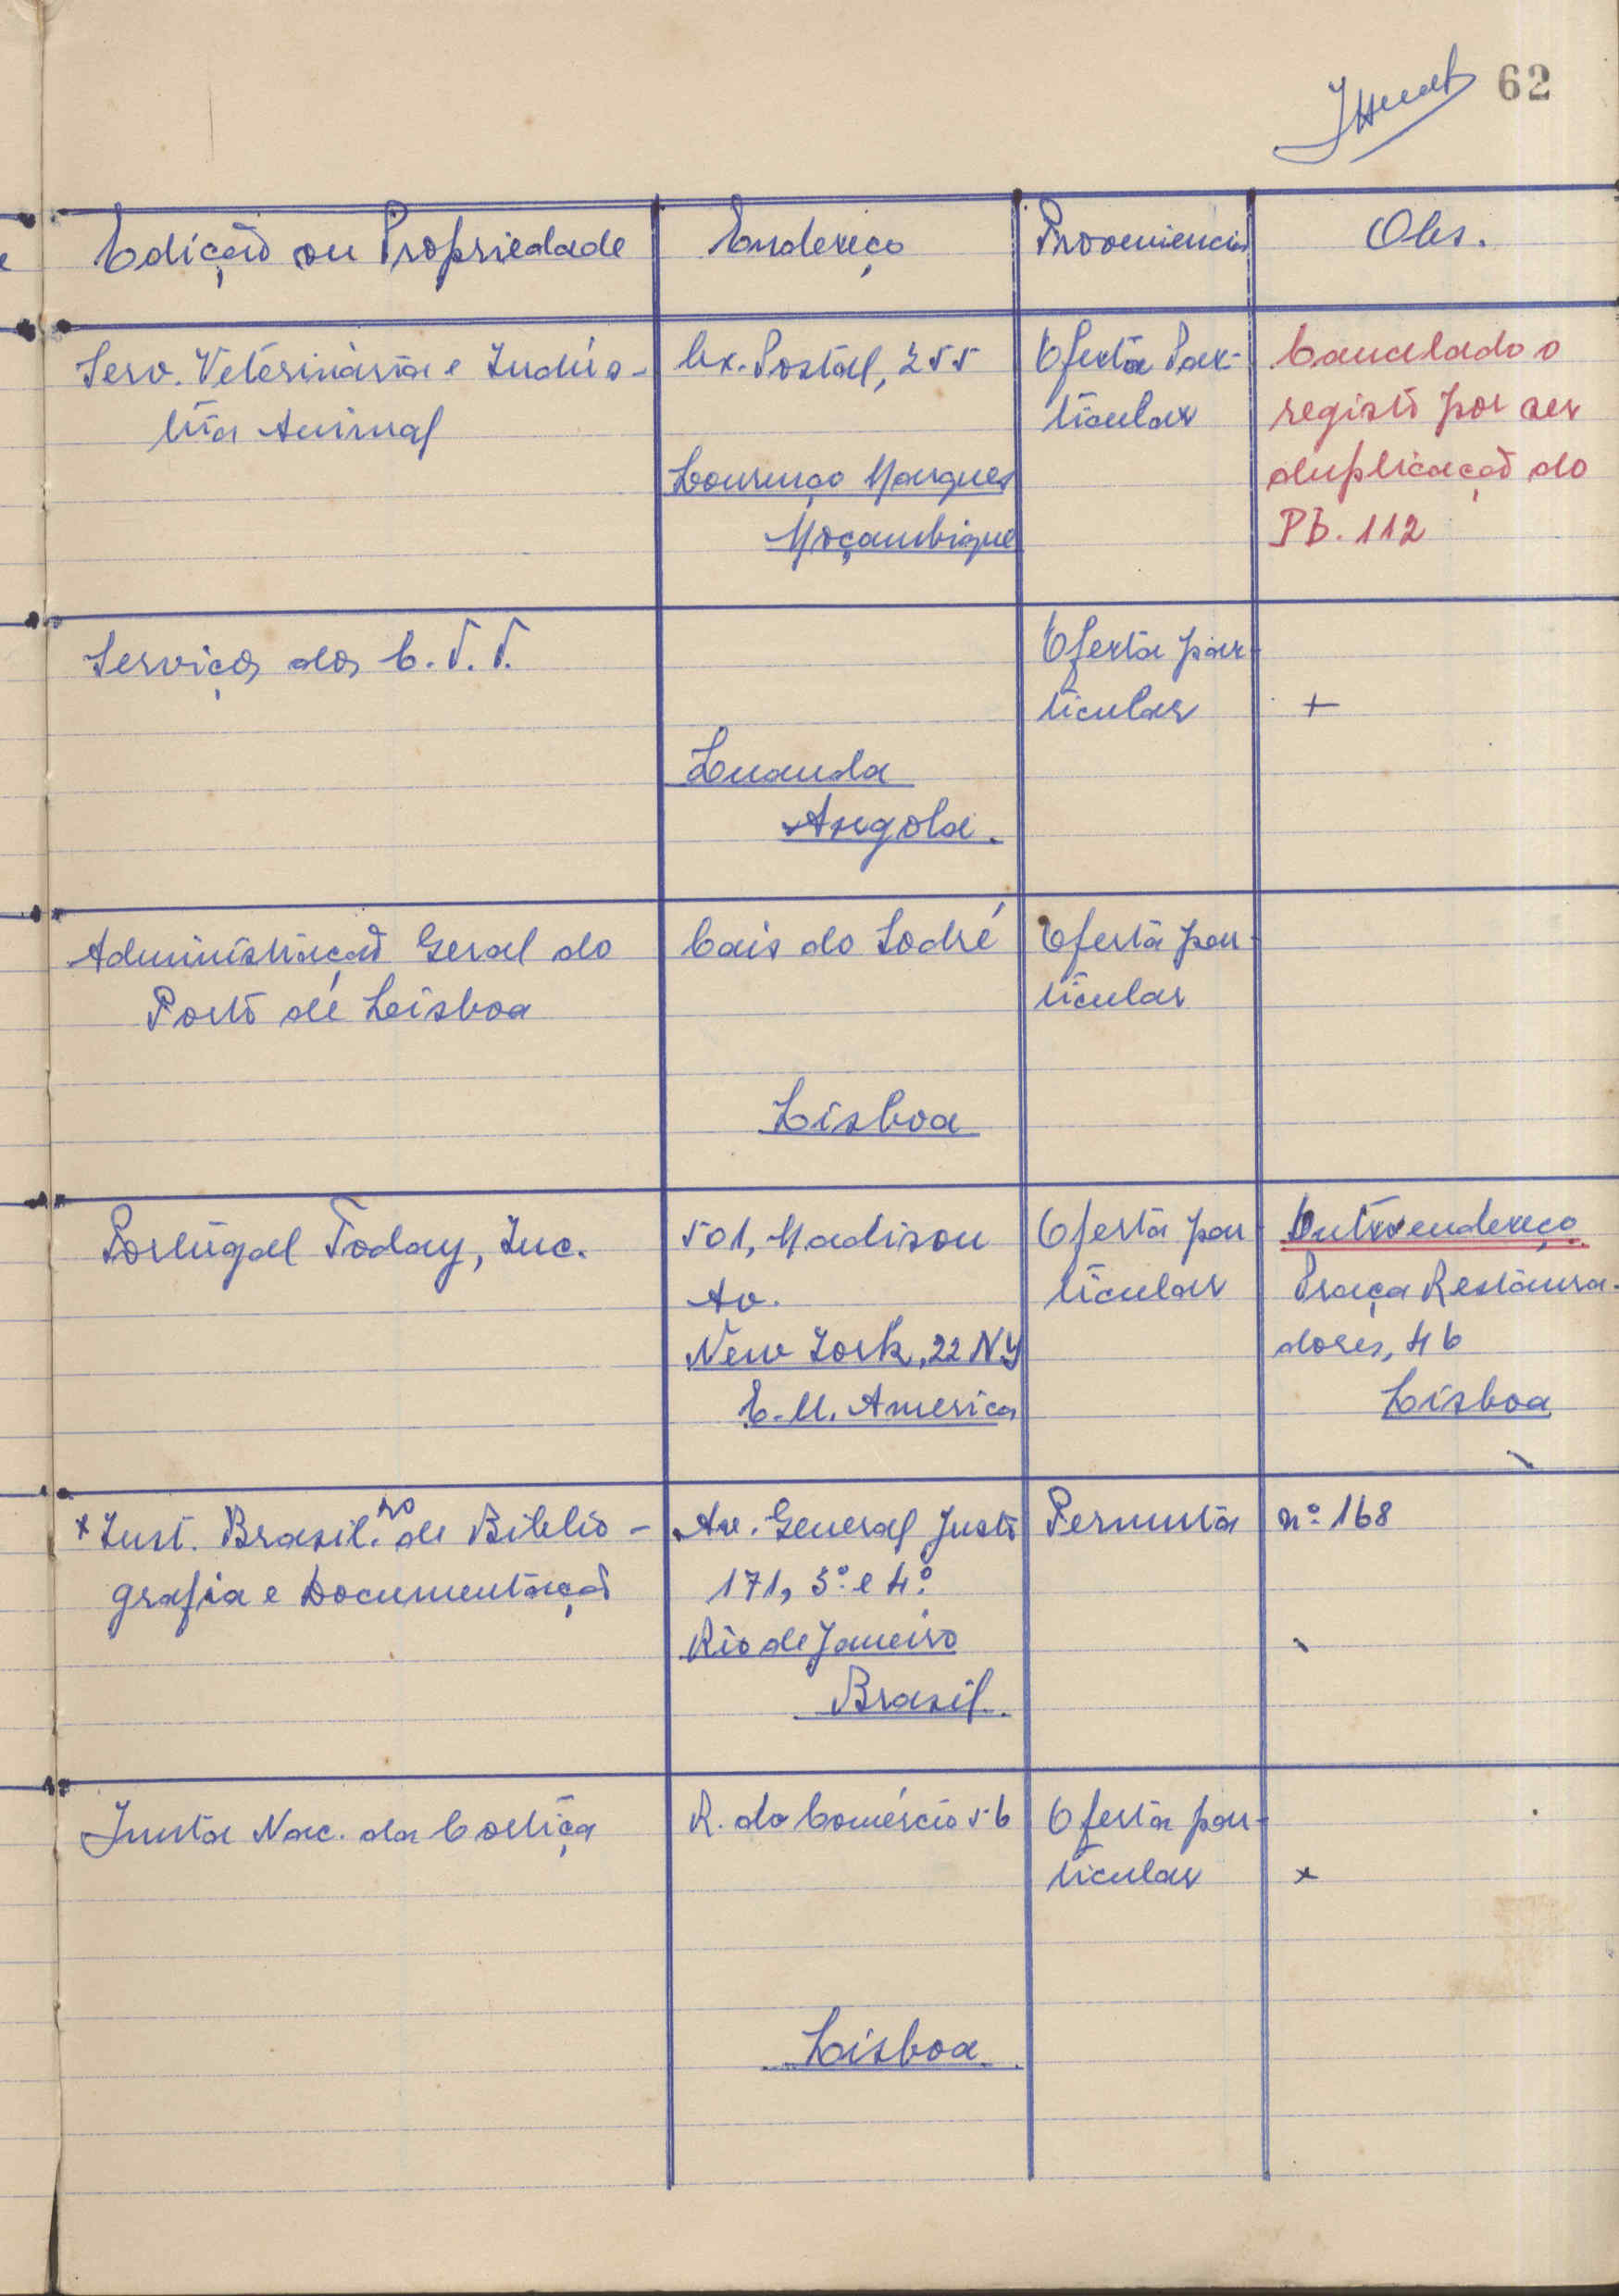 62
Edição ou Propriedade Endereço Proveniencia Obs.
Serv. Veterinária e Indús-
tria Animal
Cx. Postal, 255
Lourenço Marques
Moçambique
Oferta Par-
ticular
Cancelado o
registo por ser
duplicação do
Pb. 112
Serviços dos C.T.T.
Luanda
Angola.
Oferta par-
ticular
+
Administração Geral do
Porto de Lisboa
Cais do Sodré
Lisboa
Oferta par-
ticular
Portugal Today, Inc.
501, Madison
Av.
New York, 22 N.Y
E.U. America
Oferta par-
ticular
Outro endereço
Praça Restaura-
dores, 46
Lisboa
x Inst. Brasil.ro de Biblio-
grafia e Documentação
Av. General Justo
171, 3º e 4º
Rio de Janeiro
Brasil.
Permuta
nº 168
Junta Nac. da Cortiça
R. do Comércio 56
Lisboa
Oferta par-
ticular
x